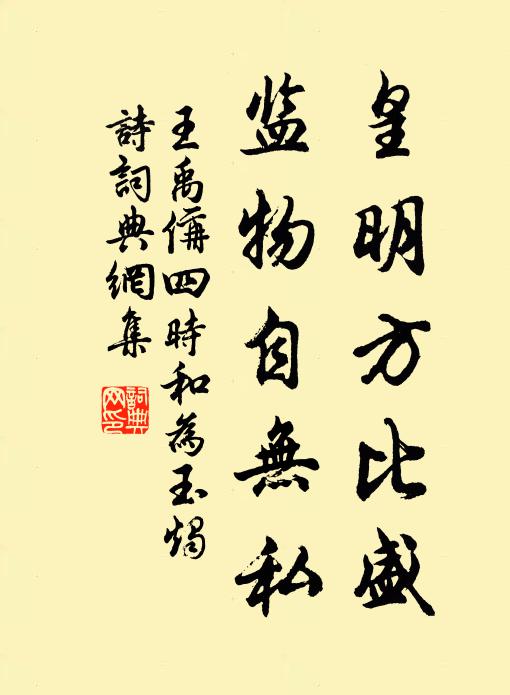 皇明方比盛
监物自無私
王禹偁四時和為玉燭
詩詞典網集
詞典网印